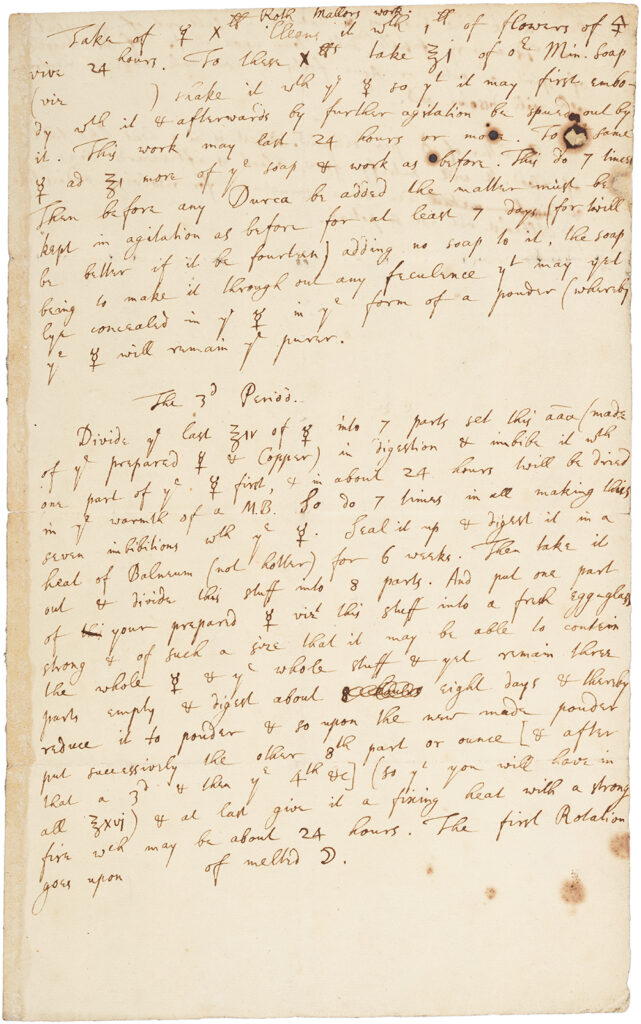 Roth Mallors work.
Take of ☿ X ℔ Cleans it wth 1 ℔ of flowers of 🜍
vive 24 hours. To these X ℔s take ℥1 of oe Min. Soap
(viz ) shake it wth ye ☿ so yt it may first embo-
dy wth it & afterwards by further agitation be spued out by
it. This work may last 24 hours or more. To same
☿ ad ℥1 more of ye soap & work as before. This do 7 times
Then before any Durca be added the matter must be
kept in agitation as before for at least 7 days (for twill
be better if it be fourteen) adding no soap to it, the soap
being to make it through out any feculence yt may yet
lye concealed in ye ☿ in ye form of a pouder (whereby
ye ☿ will remain ye purer.
The 3d Period.
Divide ye last ℥IV of ☿ into 7 parts set this aaa (made
of ye prepared ☿ & Copper) in digestion & imbibe it wth
one part of ye ☿ first, & in about 24 hours twill be dried
in ye warmth of a M.B. So do 7 times in all making thus
seven inhibitions wth ye ☿. Seal it up & digest it in a
heat of Balneum (not hotter) for 6 weeks. Then take it
out & divide this stuff into 8 parts. And put one part
of your prepared ☿ vizt this stuff into a fresh egg-glass
strong & of such a size that it may be able to contein
the whole ☿ & ye whole stuff & yet remain three
parts empty & digest about eight days & thereby
reduce it to pouder & so upon the new made pouder
put successively the other 8th part or ounce [& after
that a 3d & then ye 4th &c] (so yt you will have in
all ℥xvj) & at last give it a fixing heat with a strong
fire wch may be about 24 hours. The first Rotation
goes upon of melted ☽.